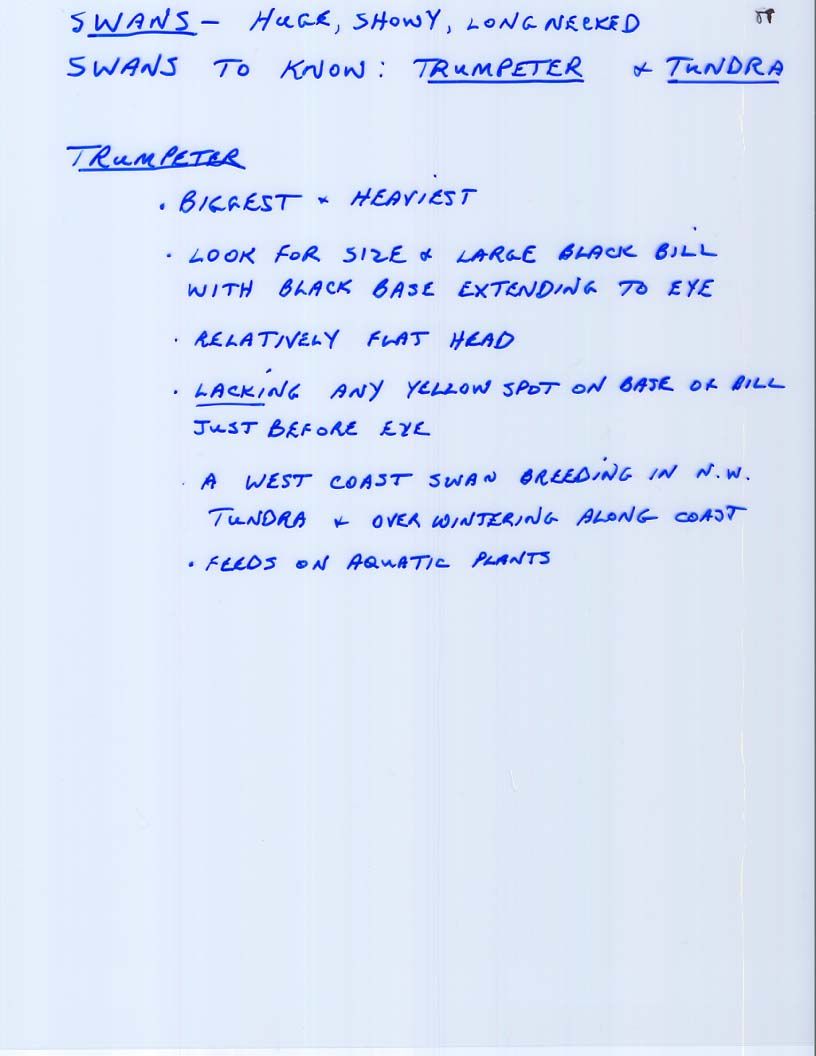 SWANS - HUGE, SHOWY, LONG NECKED
SWANS TO KNOW: TRUMPETER & TUNDRA
TRUMPETER
• BIGGEST & HEAVIEST
• LOOK FOR SIZE & LARGE BLACK BILL
WITH BLACK BASE EXTENDING TO EYE
• RELATIVELY FLAT HEAD
• LACKING ANY YELLOW SPOT ON BASE OF BILL
JUST BEFORE EYE
• A WEST COAST SWAN BREEDING IN N.W.
TUNDRA & OVER WINTERING ALONG COAST
• FEEDS ON AQUATIC PLANTS